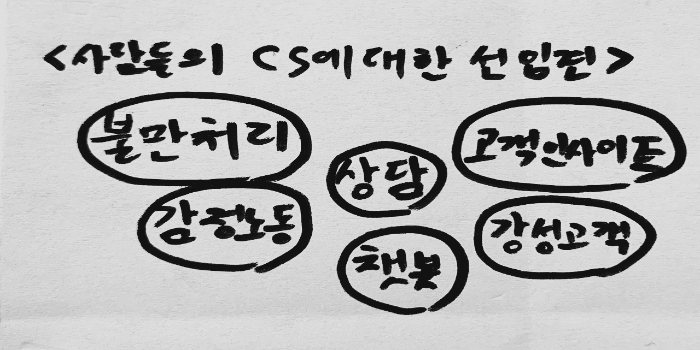 <사람들의 CS에 대한 선입편>
불만처리
상담
고객인사이트
감정노동
챗봇
강성고객